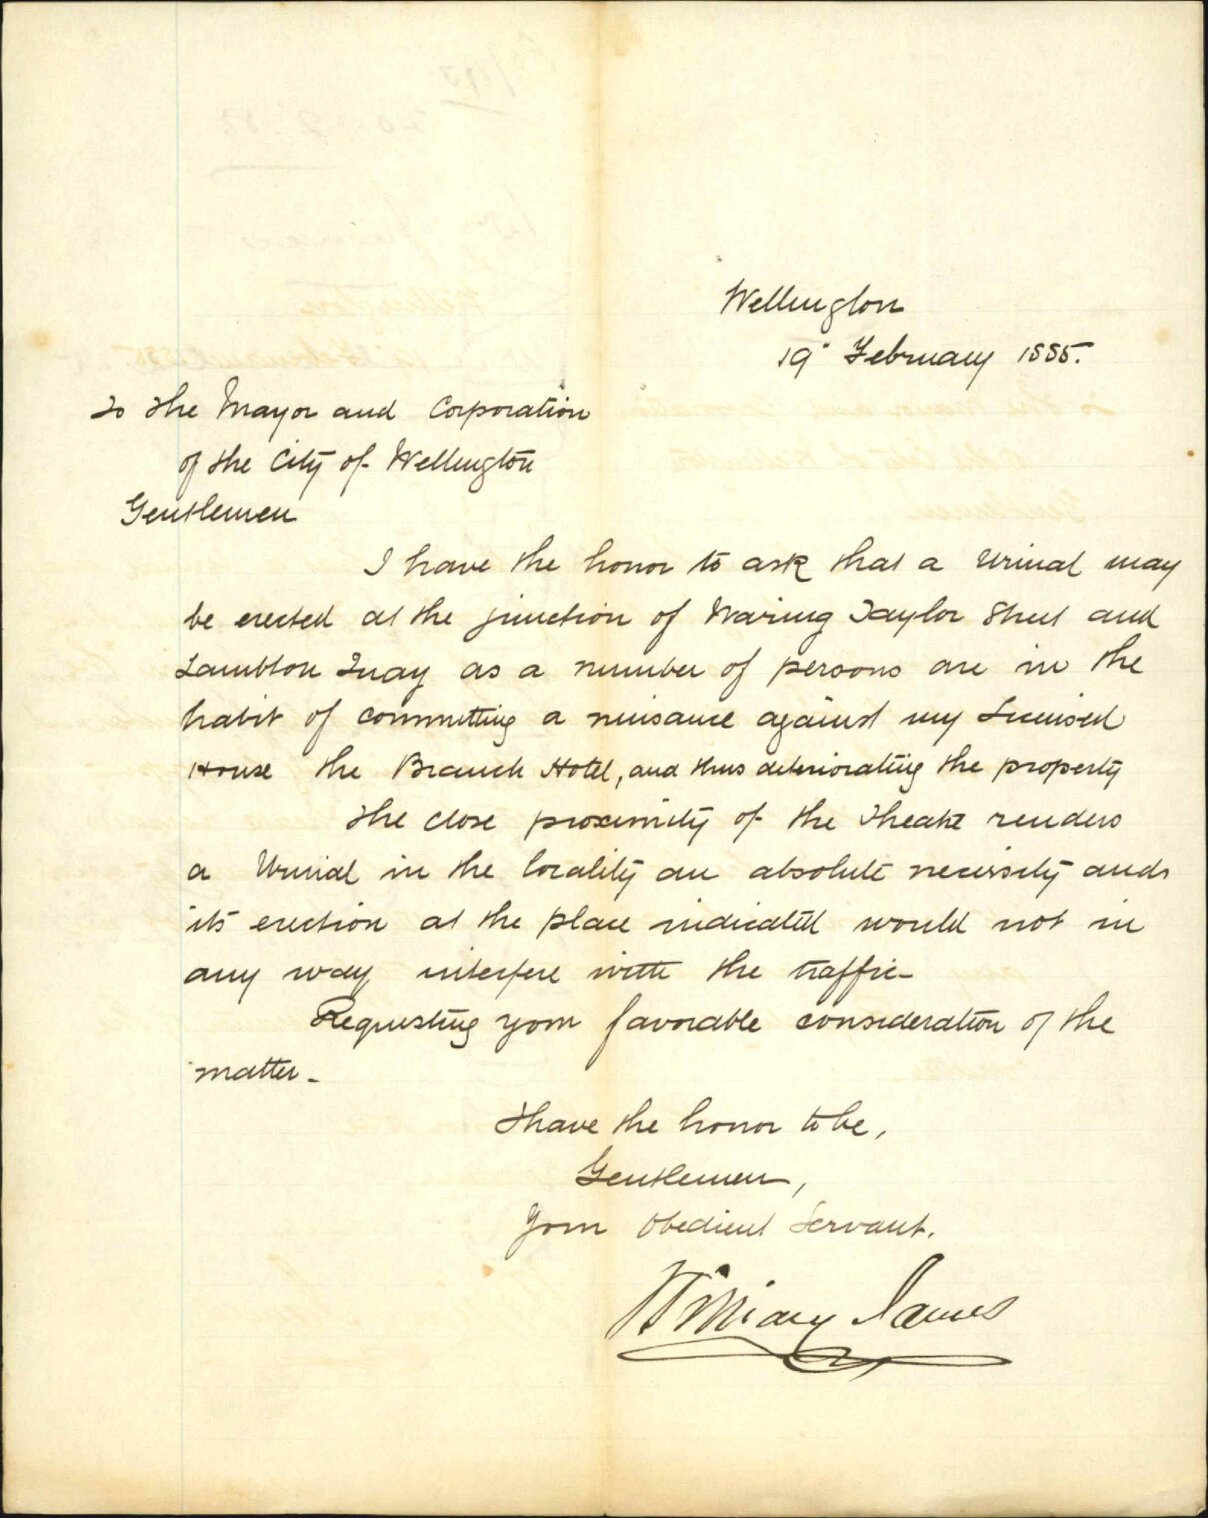 Wellington
19 February 1885.
To the Mayor and Corporation
of the City of Wellington
Gentlemen
I have the honor to ask that a Urinal may
be erected at the junction of Waring Taylor Street and
Lambton Quay as a number of persons are in the
habit of committing a nuisance against my Licensed
House the Branch Hotel, and thus deteriorating the property
The close proximity of the Theatre renders
a Urinal in the locality an absolute necessity and
its erection at the place indicated would not in
any way interfere with the traffic-
Requesting your favorable consideration of the
matter-
I have the honor to be,
Gentlemen,
Your Obedient Servant.
William James